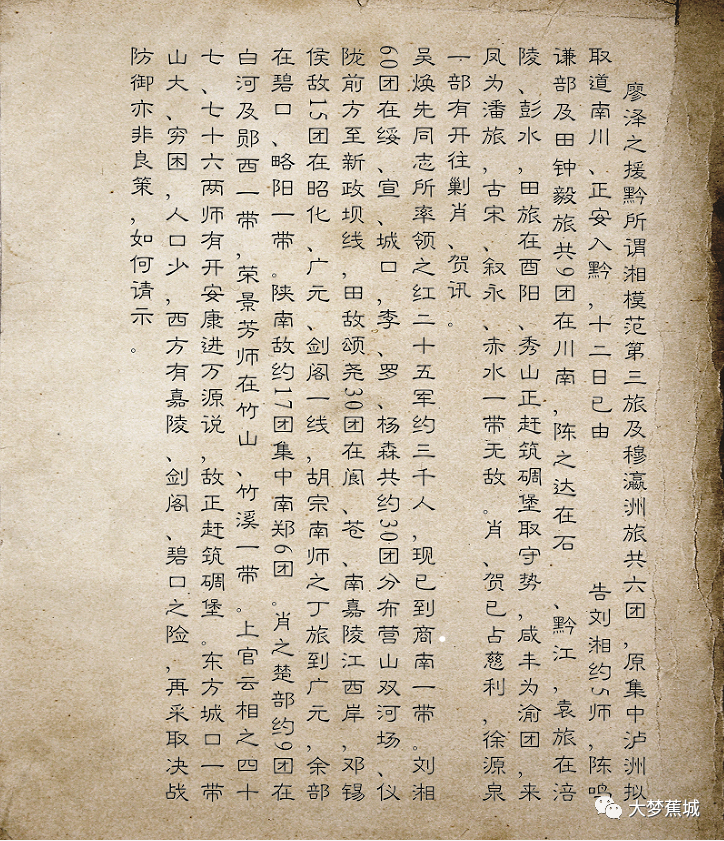 廖泽之援黔所谓湘模范第三旅及穆瀛洲旅共六团,原集中泸洲拟
取道南川、正安入黔,十二日已由 告刘湘约5师,陈鸣
谦部及田钟毅旅共9团在川南,陈之达在石 、黔江,袁旅在涪
陵、彭水,田旅在酉阳、秀山正赶筑碉堡取守势,咸丰为渝团,来
凤为潘旅,古宋、叙永、赤水一带无敌。肖、贺已占慈利,徐源泉
一部有开往剿肖、贺讯。
吴焕先同志所率领之红二十五军约三千人,现已到商南一带。刘湘
60团在绥、宣、城口,李、罗、杨森共约30团分布营山双河场、仪
陇前方至新政坝线,田敌颂尧30团在阆、苍、南嘉陵江西岸,邓锡
侯敌15团在昭化、广元、剑阁一线,胡宗南师之丁旅到广元,余部
在碧口、略阳一带。陕南敌约17团集中南郑6团。肖之楚部约9团在
白河及郧西一带,荣景芳师在竹山、竹溪一带。上官云相之四十
七、七十六两师有开安康进万源说,敌正赶筑碉堡。东方城口一带
山大、穷困,人口少,西方有嘉陵、剑阁、碧口之险,再采取决战
防御亦非良策,如何请示。
大梦蕉城